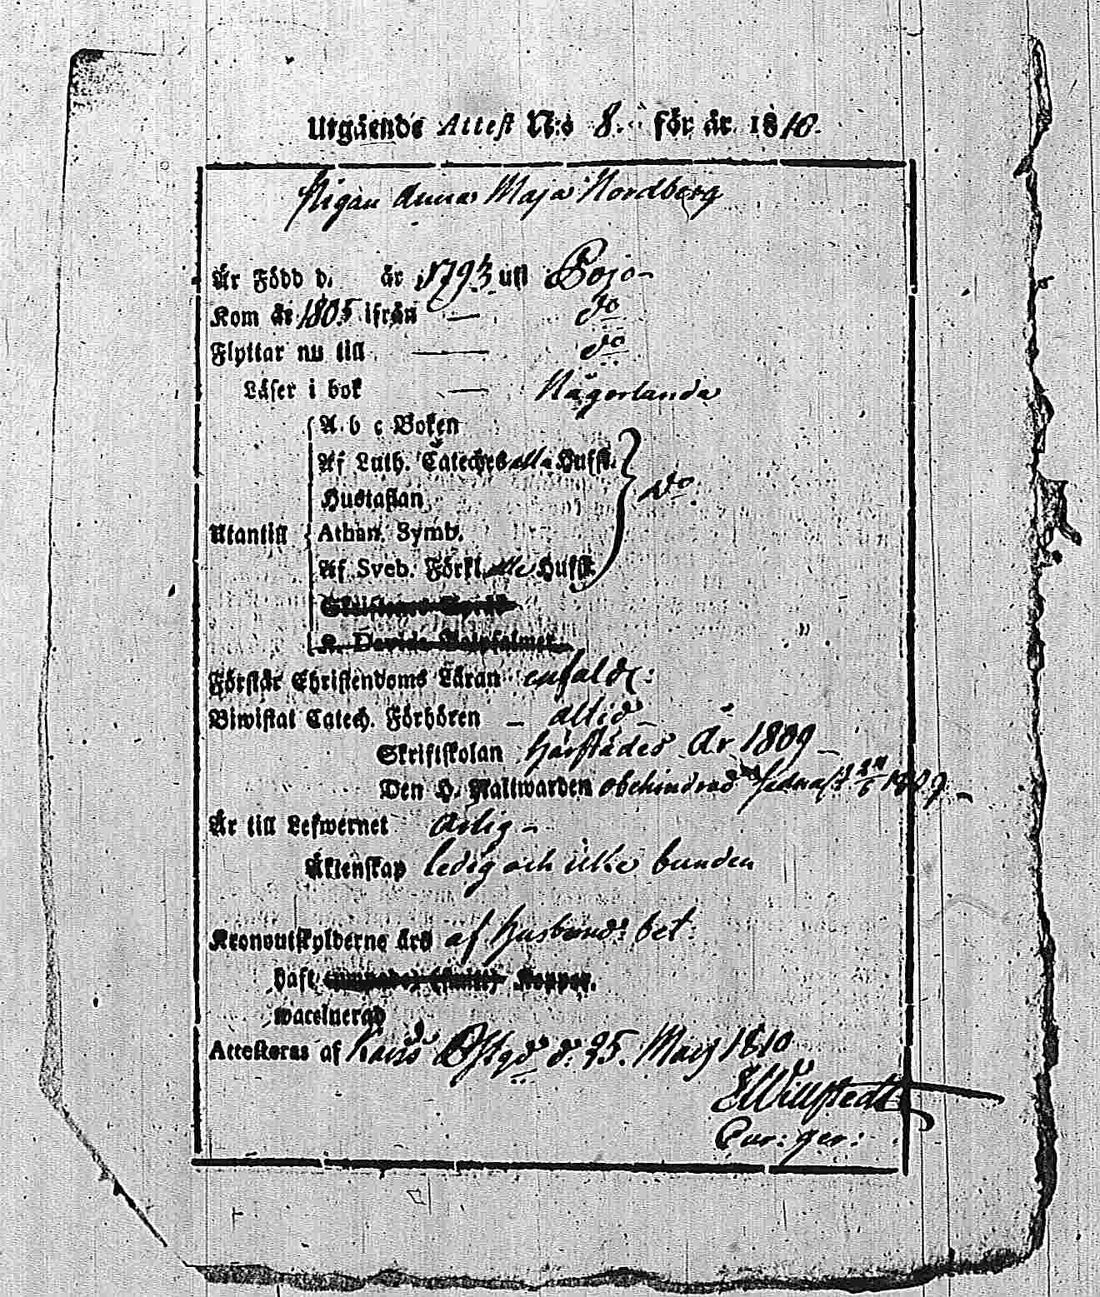 Utgåénde Attest N:o 8. för år 1810.
Pigan Anna Maja Nordberg
Är Född d. år 1793 uti Pojo
Kom år 1805 ifrån — do
Flyttar nu till — do
Läser i bok — Någorlunda
A b c Boken
Af Luth. Cateches alla Hufst.
Hustaflan
Utantill Athan. Symb. Do
Af Sveb. Förkl. alla Hufst.
Förstår Christendoms Läran enfaldt:
Biwistat Catech. Förhören — altid —
Skriftskolan härstädes År 1809 —
Den H. Nattwarden obehindrad sednast 1809 —
Är till Lefwernet Ärlig —
Äktenskap ledig och icke bunden
Kronoutskylderne äro af husbond: bet:
haft Koppor.
waccinerad
Attesteras af d. 25. Marj 1810